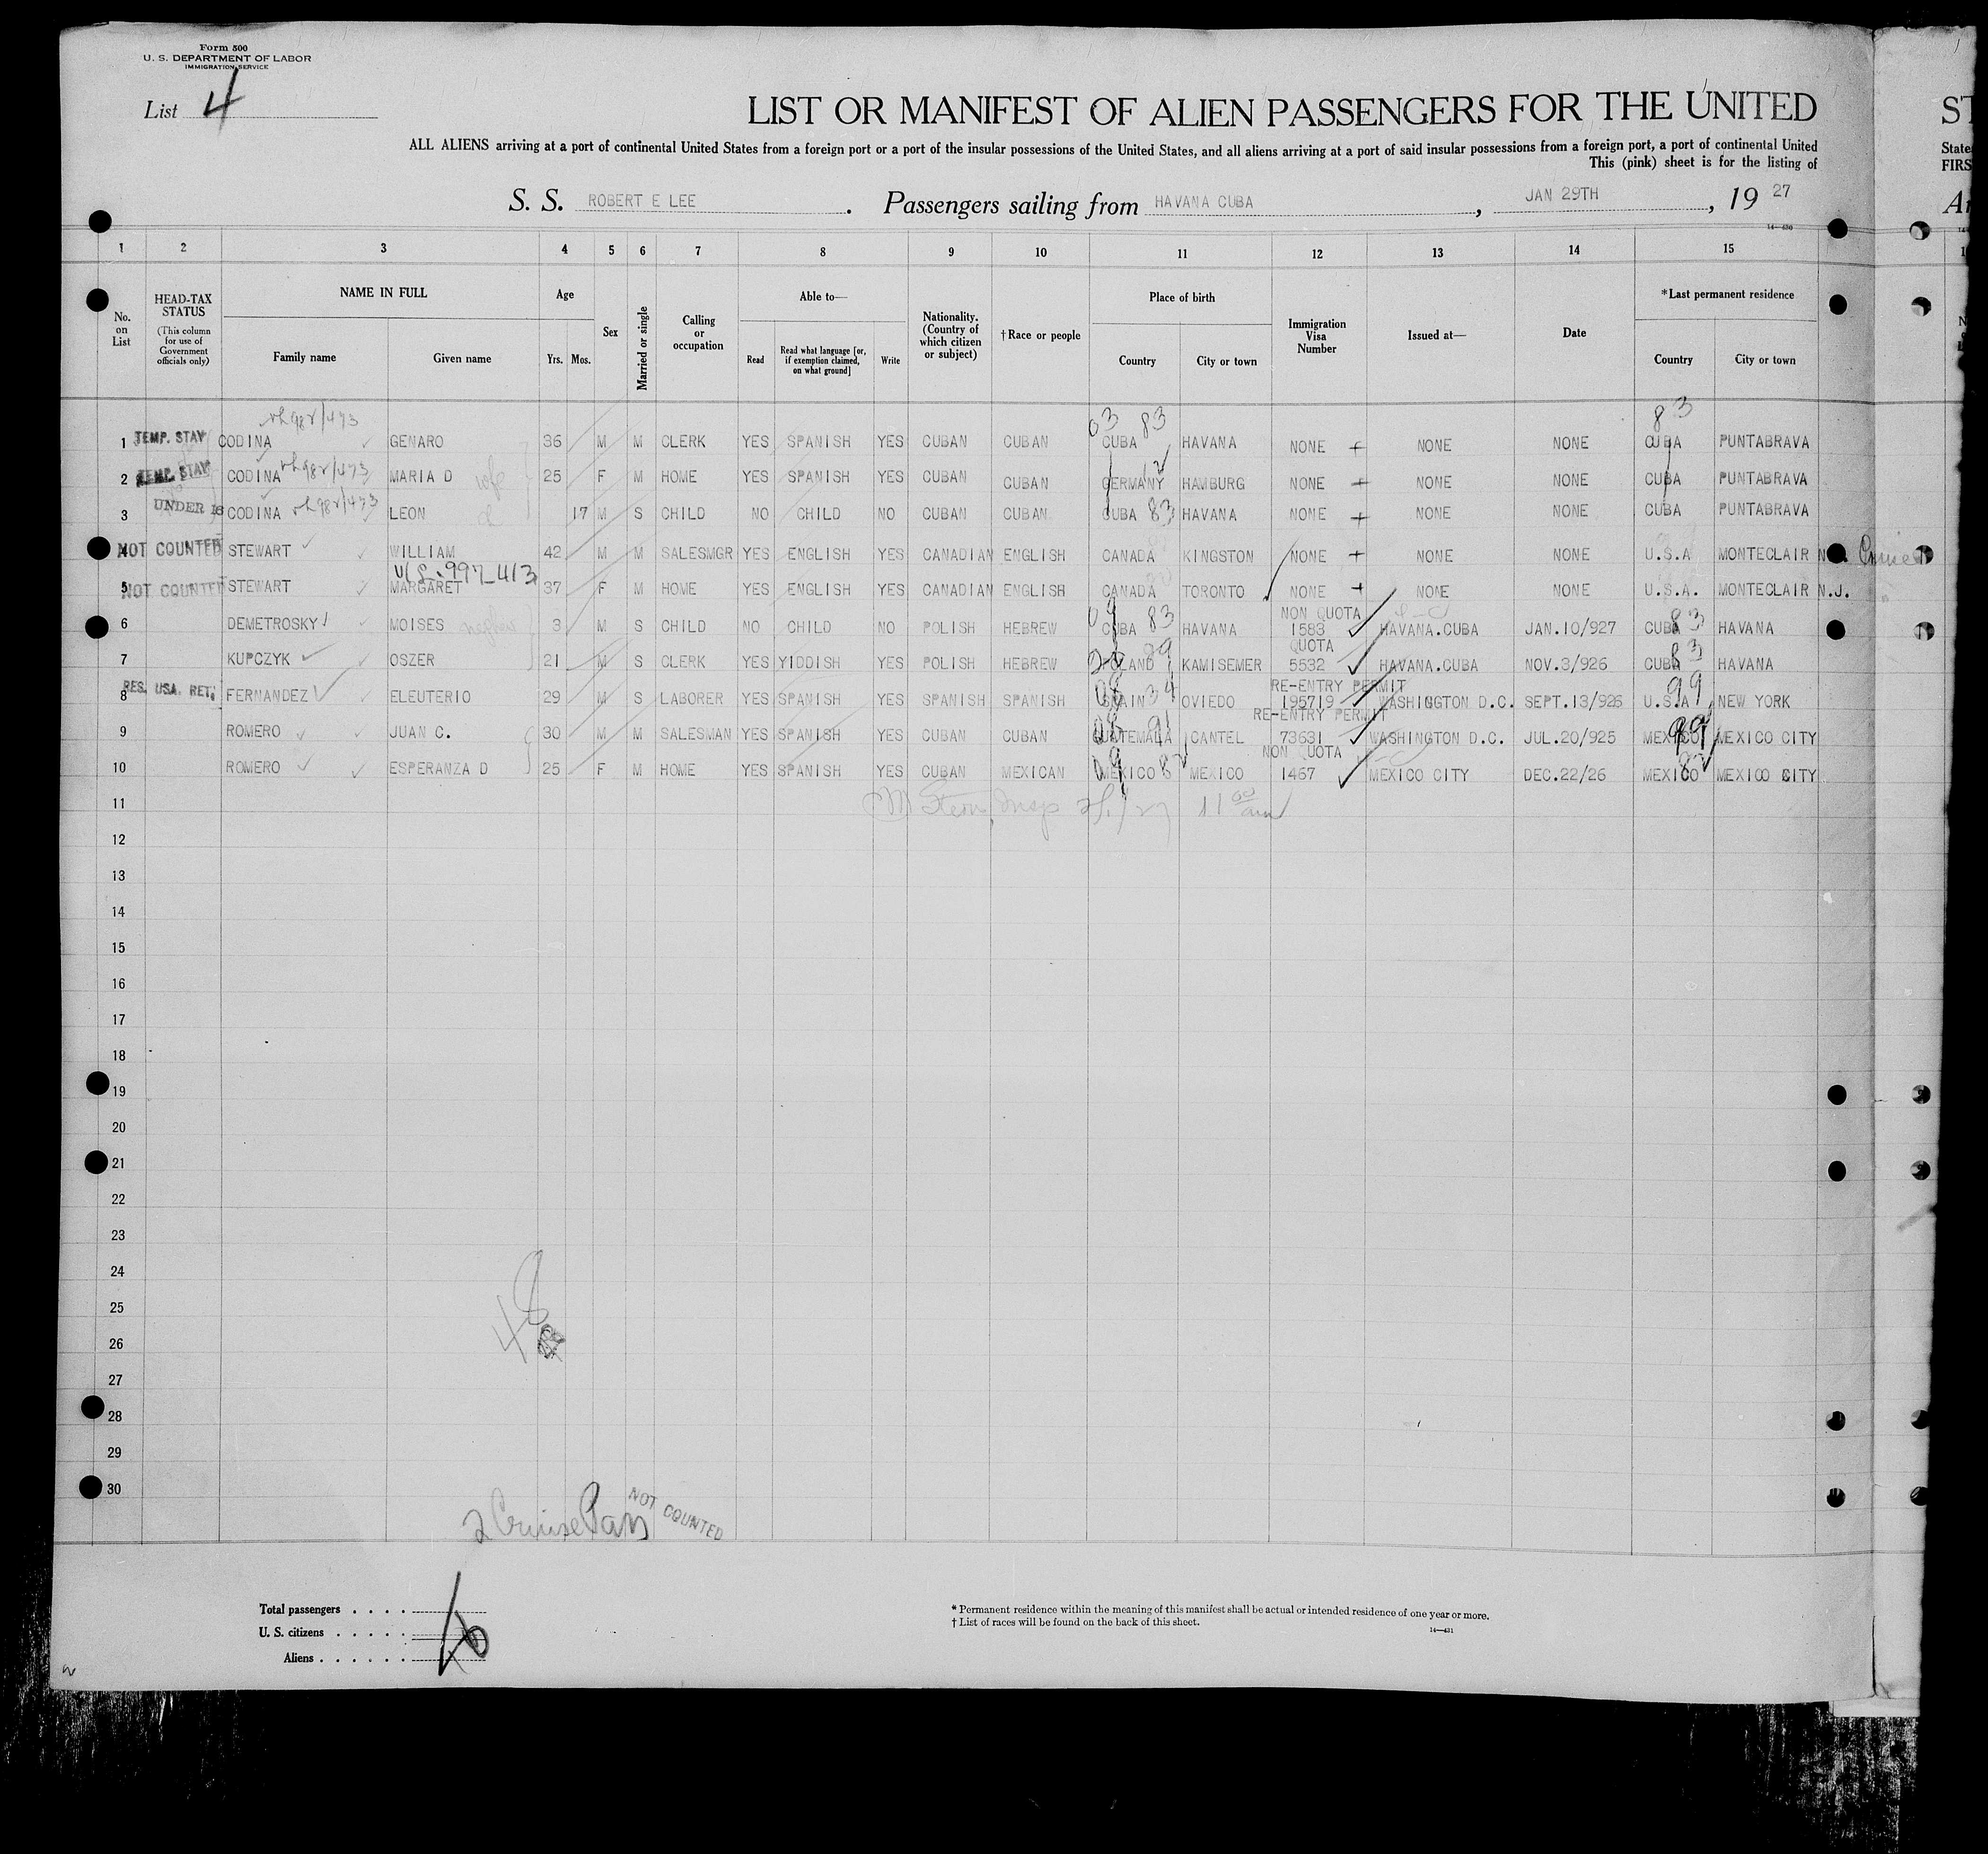 Form 500
U. S. DEPARTMENT OF LABOR
IMMIGRATION SERVICE
List 4
LIST OR MANIFEST OF ALIEN PASSENGERS FOR THE UNITED ST
ALL ALIENS arriving at a port of continental United States from a foreign port or a port of the insular possessions of the United States, and all aliens arriving at a port of said insular possessions from a foreign port, a port of continental United State
This (pink) sheet is for the listing of FIRS
S. S. ROBERT E LEE . Passengers sailing from HAVANA CUBA , JAN 29TH , 19 27
14—430
1 2 3 4 5 6 7 8 9 10 11 12 13 14 15
No. on List
HEAD-TAX STATUS (This column for use of Government officials only)
NAME IN FULL Family name Given name
Age Yrs. Mos.
Sex
Married or single
Calling or occupation
Able to— Read Read what language [or, if exemption claimed, on what ground] Write
Nationality. (Country of which citizen or subject)
†Race or people
Place of birth Country City or town
Immigration Visa Number
Issued at—
Date
*Last permanent residence Country City or town
03 83 83
1 TEMP. STAY CODINA GENARO 36 M M CLERK YES SPANISH YES CUBAN CUBAN CUBA HAVANA NONE + NONE NONE CUBA PUNTABRAVA
2 TEMP. STAY CODINA MARIA D wife 25 F M HOME YES SPANISH YES CUBAN CUBAN GERMANY 12 HAMBURG NONE + NONE NONE CUBA PUNTABRAVA
3 UNDER 16 CODINA LEON 17 M S CHILD NO CHILD NO CUBAN CUBAN CUBA 83 HAVANA NONE + NONE NONE CUBA PUNTABRAVA
4 NOT COUNTED STEWART WILLIAM 42 M M SALESMGR YES ENGLISH YES CANADIAN ENGLISH CANADA KINGSTON NONE + NONE NONE U.S.A MONTECLAIR N.
5 NOT COUNTED STEWART MARGARET 37 F M HOME YES ENGLISH YES CANADIAN ENGLISH CANADA TORONTO NONE + NONE NONE U.S.A. MONTECLAIR N.J.
6 DEMETROSKY MOISES nephew 3 M S CHILD NO CHILD NO POLISH HEBREW CUBA 83 HAVANA NON QUOTA 1583 HAVANA.CUBA JAN.10/927 CUBA 83 HAVANA
7 KUPCZYK OSZER 21 M S CLERK YES YIDDISH YES POLISH HEBREW POLAND KAMISEMER QUOTA 5532 HAVANA.CUBA NOV.3/926 CUBA 83 HAVANA
8 RES. USA. RET. FERNANDEZ ELEUTERIO 29 M S LABORER YES SPANISH YES SPANISH SPANISH SPAIN 34 OVIEDO RE-ENTRY PERMIT 195719 WASHINGTON D.C. SEPT.13/926 U.S.A 99 NEW YORK
9 ROMERO JUAN C. 30 M M SALESMAN YES SPANISH YES CUBAN CUBAN GUATEMALA 91 CANTEL RE-ENTRY PERMIT 73631 WASHINGTON D.C. JUL.20/925 MEXICO MEXICO CITY
10 ROMERO ESPERANZA D 25 F M HOME YES SPANISH YES CUBAN MEXICAN MEXICO MEXICO NON QUOTA 1467 MEXICO CITY DEC.22/26 MEXICO MEXICO CITY
11 Insp 2/1/27 11 00 am
12
13
14
15
16
17
18
19
20
21
22
23
24
25
26
27
28
29
30
48
2 Cruise Pass NOT COUNTED
Total passengers . . . .
U. S. citizens . . . . .
Aliens . . . . . .
10
* Permanent residence within the meaning of this manifest shall be actual or intended residence of one year or more.
† List of races will be found on the back of this sheet.
14—431